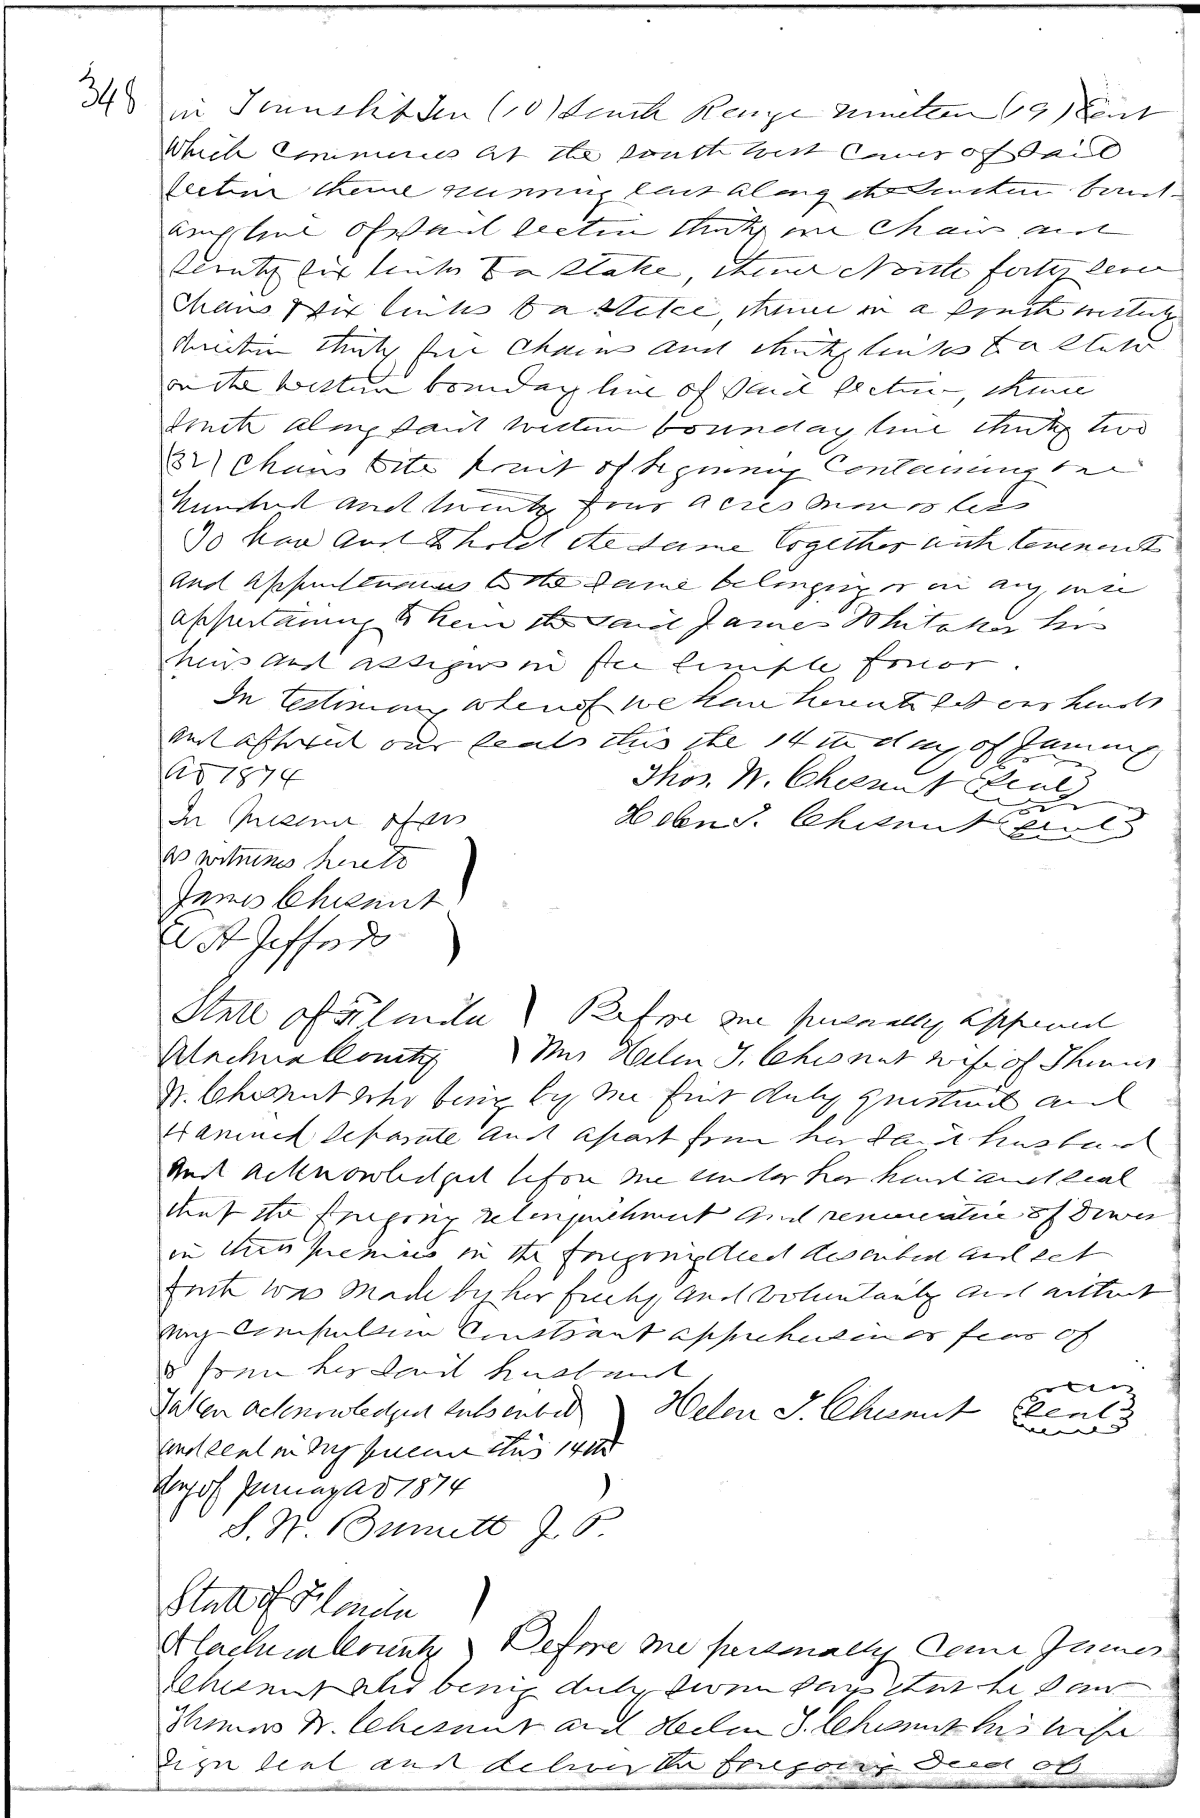 348
in Township Ten (10) South Range nineteen (19) East
which commences at the south west corner of said
section thence running east along the Southern bound-
ary line of said section thirty one chains and
seventy six links to a stake, thence North forty seven
chains & six links to a stake, thence in a south westerly
direction thirty five chains and thirty links to a stake
on the western bounday line of said section, thence
south along said western bounday line thirty two
(32) chains to the point of beginning Containing one
hundred and twenty four acres more or less
To have and to hold the same together with tenements
and appurtenances to the same belonging or in any wise
appertaining to him the said James Whitaker his
heirs and assigns in fee simple forever.
In testimony whereof we have hereunto set our hands
and affixed our seals this the 14th day of January
AD 1874
Thos. W. Chesnut Seal
In presence of us
Helen I. Chesnut Seal
as witnesses hereto
James Chesnut
A Jeffords
State of Florida ) Before me personally appeared
Alachua County ) Mrs Helen I. Chesnut wife of Thomas
W. Chesnut who being by me first duly questioned and
examined separate and apart from her said husband
and acknowledged before me under her hand and seal
that the foregoing relinquishment and renunciation of Dower
in the premises in the foregoing deed described and set
forth was made by her freely and voluntarily and without
any compulsion constraint apprehension or fear of
or from her said husband
Taken acknowledged subscribed
Helen I. Chesnut Seal
and seal in my presence this 14th
day of January AD 1874
S. W. Burnett J. P.
State of Florida )
Alachua County ) Before me personally came James
Chesnut who being duly sworn says that he saw
Thomas W. Chesnut and Helen I. Chesnut his wife
sign seal and deliver the foregoing Deed of